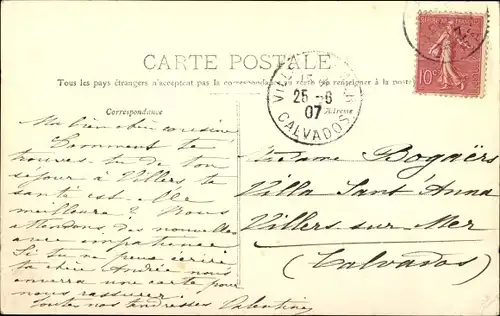 CARTE POSTALE
Tous les pays étrangers n'acceptent pas la correspondance au recto (se renseigner à la poste)
Correspondance
Adresse
VILLERS MER
15
25 -6
07
CALVADOS
10c
Ma bien chère cousine,
Comment te
trouves-tu de ton
séjour à Villers ta
santé est-elle
meilleure? Nous
attendons des nouvelles
avec impatience.
Si tu ne peux écrire
ta chère Andrée nous
enverra une carte pour
nous rassurer.
Toutes nos tendresses Valentine
Madame Bogaërs
Villa Sant' Anna
Villers sur Mer
(Calvados)